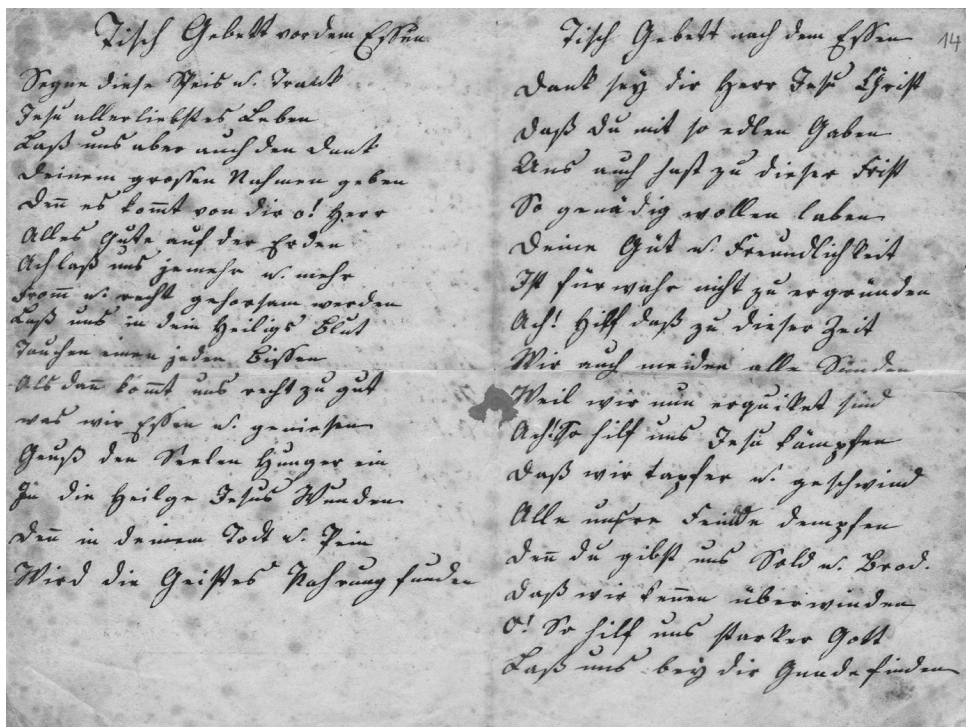 Tisch Gebett vor dem Essen
Segne diese Speis u. Tranck
Jesu allerliebstes Leben
Laß uns aber auch den Dank
Deinem grossen Nahmen geben
Deñ es kom̃t von dir o! Herr
Alles Gute auf der Erden
Ach laß uns jemehr u. mehr
From̃ u. recht gehorsam werden
Laß uns in dein Heiligs Blut
Tauchen einen jeden Bissen
Als dañ kom̃t uns recht zu gut
was wir Essen u. geniesen
Geuß den Seelen Hunger ein
In die Heilge Jesus Wunden
Deñ in deinem Todt u. Pein
Wird die Geistes Nahrung funden
Tisch Gebett nach dem Essen
14
Dank sey dir Herr Jesu Christ
Daß du mit so edlen Gaben
Uns auch hast zu dieser Frist
So genädig wollen laben
Deine Güt u. Freundlichkeit
Ist fürwahr nicht zu ergründen
Ach! Hilf daß zu dieser Zeit
Wir auch meiden alle Sünden
Weil wir nun erquiket sind
Ach! So hilf uns Jesu kämpfen
Daß wir tapfer u. geschwind
Alle unsre Feinde dempfen
Deñ du gibst uns Sold u. Brod.
Daß wir kennen überwinden
O! So hilf uns starker Gott
Laß uns bey dir Gnade finden